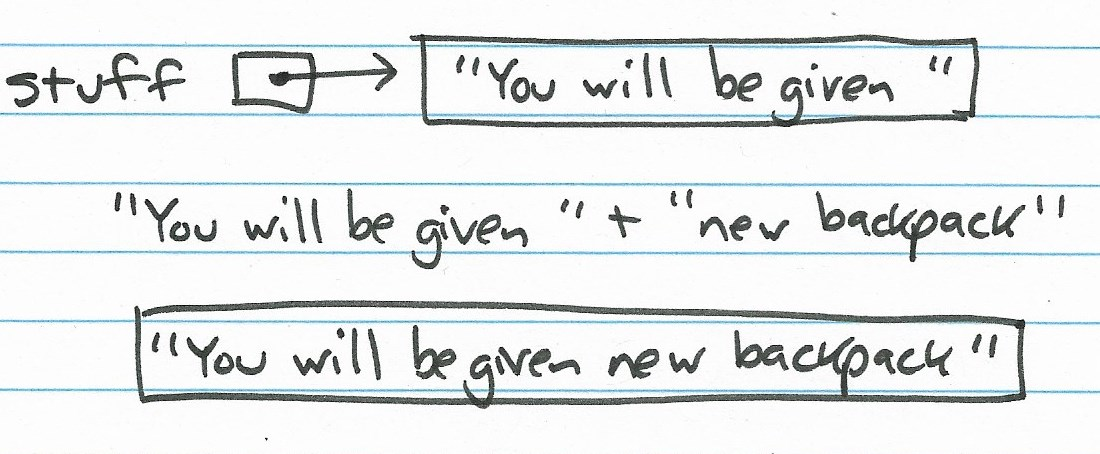 stuff "You will be given "
"You will be given " + "new backpack"
"You will be given new backpack"